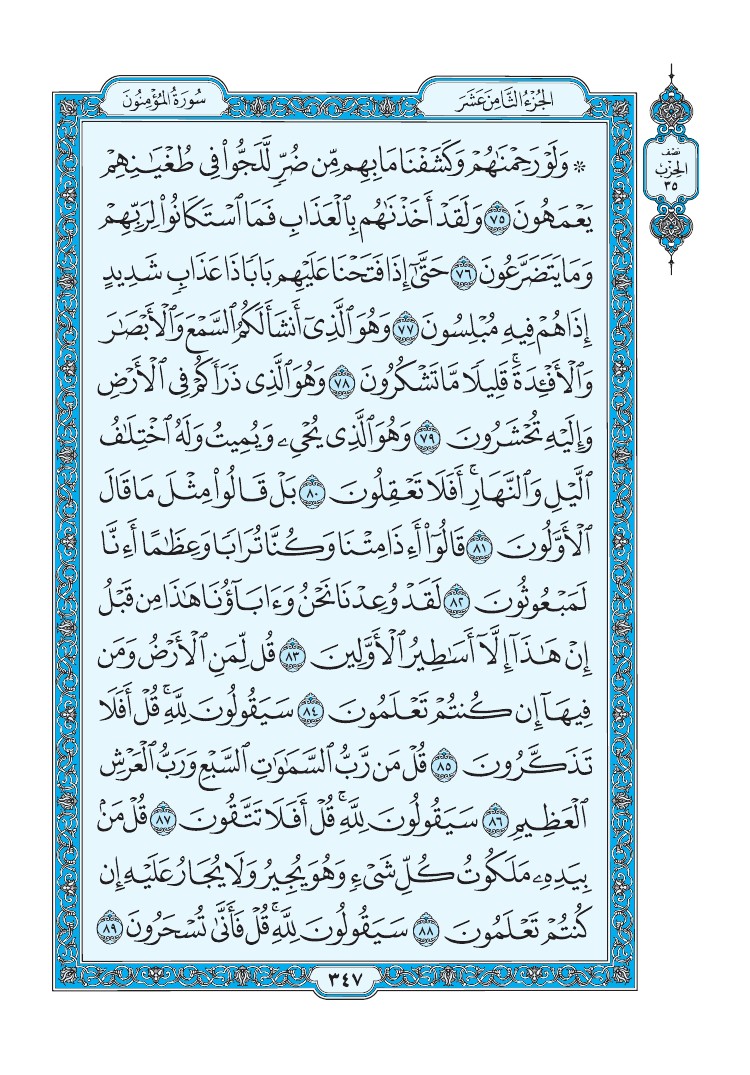 الجُزْءُ الثَّامِنَ عَشَرَ
سُورَةُ المُؤْمِنُونَ
نصف
الحزب
٣٥
۞ وَلَوْ رَحِمْنَٰهُمْ وَكَشَفْنَا مَا بِهِم مِّن ضُرٍّ لَّلَجُّوا۟ فِى طُغْيَٰنِهِمْ
يَعْمَهُونَ ٧٥ وَلَقَدْ أَخَذْنَٰهُم بِٱلْعَذَابِ فَمَا ٱسْتَكَانُوا۟ لِرَبِّهِمْ
وَمَا يَتَضَرَّعُونَ ٧٦ حَتَّىٰٓ إِذَا فَتَحْنَا عَلَيْهِم بَابًا ذَا عَذَابٍ شَدِيدٍ
إِذَا هُمْ فِيهِ مُبْلِسُونَ ٧٧ وَهُوَ ٱلَّذِىٓ أَنشَأَ لَكُمُ ٱلسَّمْعَ وَٱلْأَبْصَٰرَ
وَٱلْأَفْـِٔدَةَ ۚ قَلِيلًا مَّا تَشْكُرُونَ ٧٨ وَهُوَ ٱلَّذِى ذَرَأَكُمْ فِى ٱلْأَرْضِ
وَإِلَيْهِ تُحْشَرُونَ ٧٩ وَهُوَ ٱلَّذِى يُحْىِۦ وَيُمِيتُ وَلَهُ ٱخْتِلَٰفُ
ٱلَّيْلِ وَٱلنَّهَارِ ۚ أَفَلَا تَعْقِلُونَ ٨٠ بَلْ قَالُوا۟ مِثْلَ مَا قَالَ
ٱلْأَوَّلُونَ ٨١ قَالُوٓا۟ أَءِذَا مِتْنَا وَكُنَّا تُرَابًا وَعِظَٰمًا أَءِنَّا
لَمَبْعُوثُونَ ٨٢ لَقَدْ وُعِدْنَا نَحْنُ وَءَابَآؤُنَا هَٰذَا مِن قَبْلُ
إِنْ هَٰذَآ إِلَّآ أَسَٰطِيرُ ٱلْأَوَّلِينَ ٨٣ قُل لِّمَنِ ٱلْأَرْضُ وَمَن
فِيهَآ إِن كُنتُمْ تَعْلَمُونَ ٨٤ سَيَقُولُونَ لِلَّهِ ۚ قُلْ أَفَلَا
تَذَكَّرُونَ ٨٥ قُلْ مَن رَّبُّ ٱلسَّمَٰوَٰتِ ٱلسَّبْعِ وَرَبُّ ٱلْعَرْشِ
ٱلْعَظِيمِ ٨٦ سَيَقُولُونَ لِلَّهِ ۚ قُلْ أَفَلَا تَتَّقُونَ ٨٧ قُلْ مَنۢ
بِيَدِهِۦ مَلَكُوتُ كُلِّ شَىْءٍ وَهُوَ يُجِيرُ وَلَا يُجَارُ عَلَيْهِ إِن
كُنتُمْ تَعْلَمُونَ ٨٨ سَيَقُولُونَ لِلَّهِ ۚ قُلْ فَأَنَّىٰ تُسْحَرُونَ ٨٩
٣٤٧